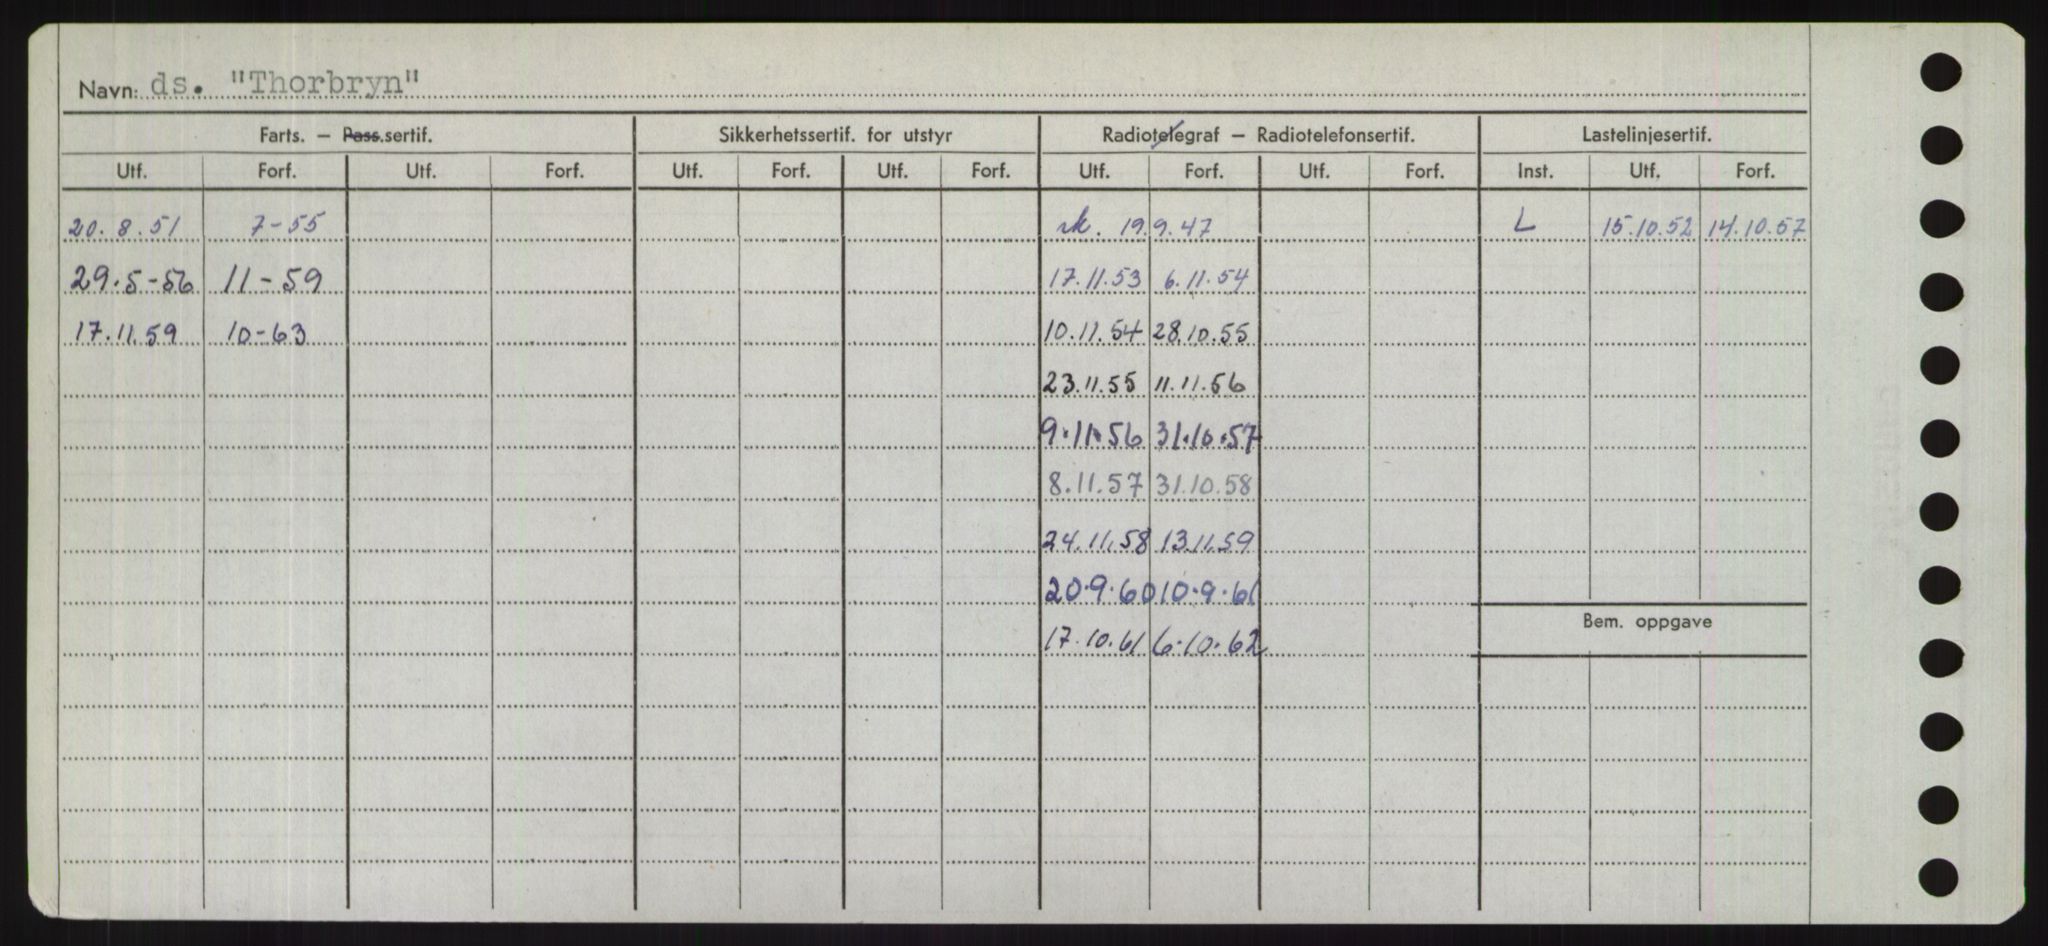 Navn: ds. "Thorbryn"
Farts. – Pass.sertif. Sikkerhetssertif. for utstyr Radiotelegraf – Radiotelefonsertif. Lastelinjesertif.
Utf. Forf. Utf. Forf. Utf. Forf. Utf. Forf. Utf. Forf. Utf. Forf. Inst. Utf. Forf.
20.8.51 7-55 19.9.47 L 15.10.52 14.10.57
29.5-56 11-59 17.11.53 6.11.54
17.11.59 10-63 10.11.54 28.10.55
23.11.55 11.11.56
9.11.56 31.10.57
8.11.57 31.10.58
24.11.58 13.11.59
20.9.60 10.9.61
Bem. oppgave
17.10.61 6.10.62